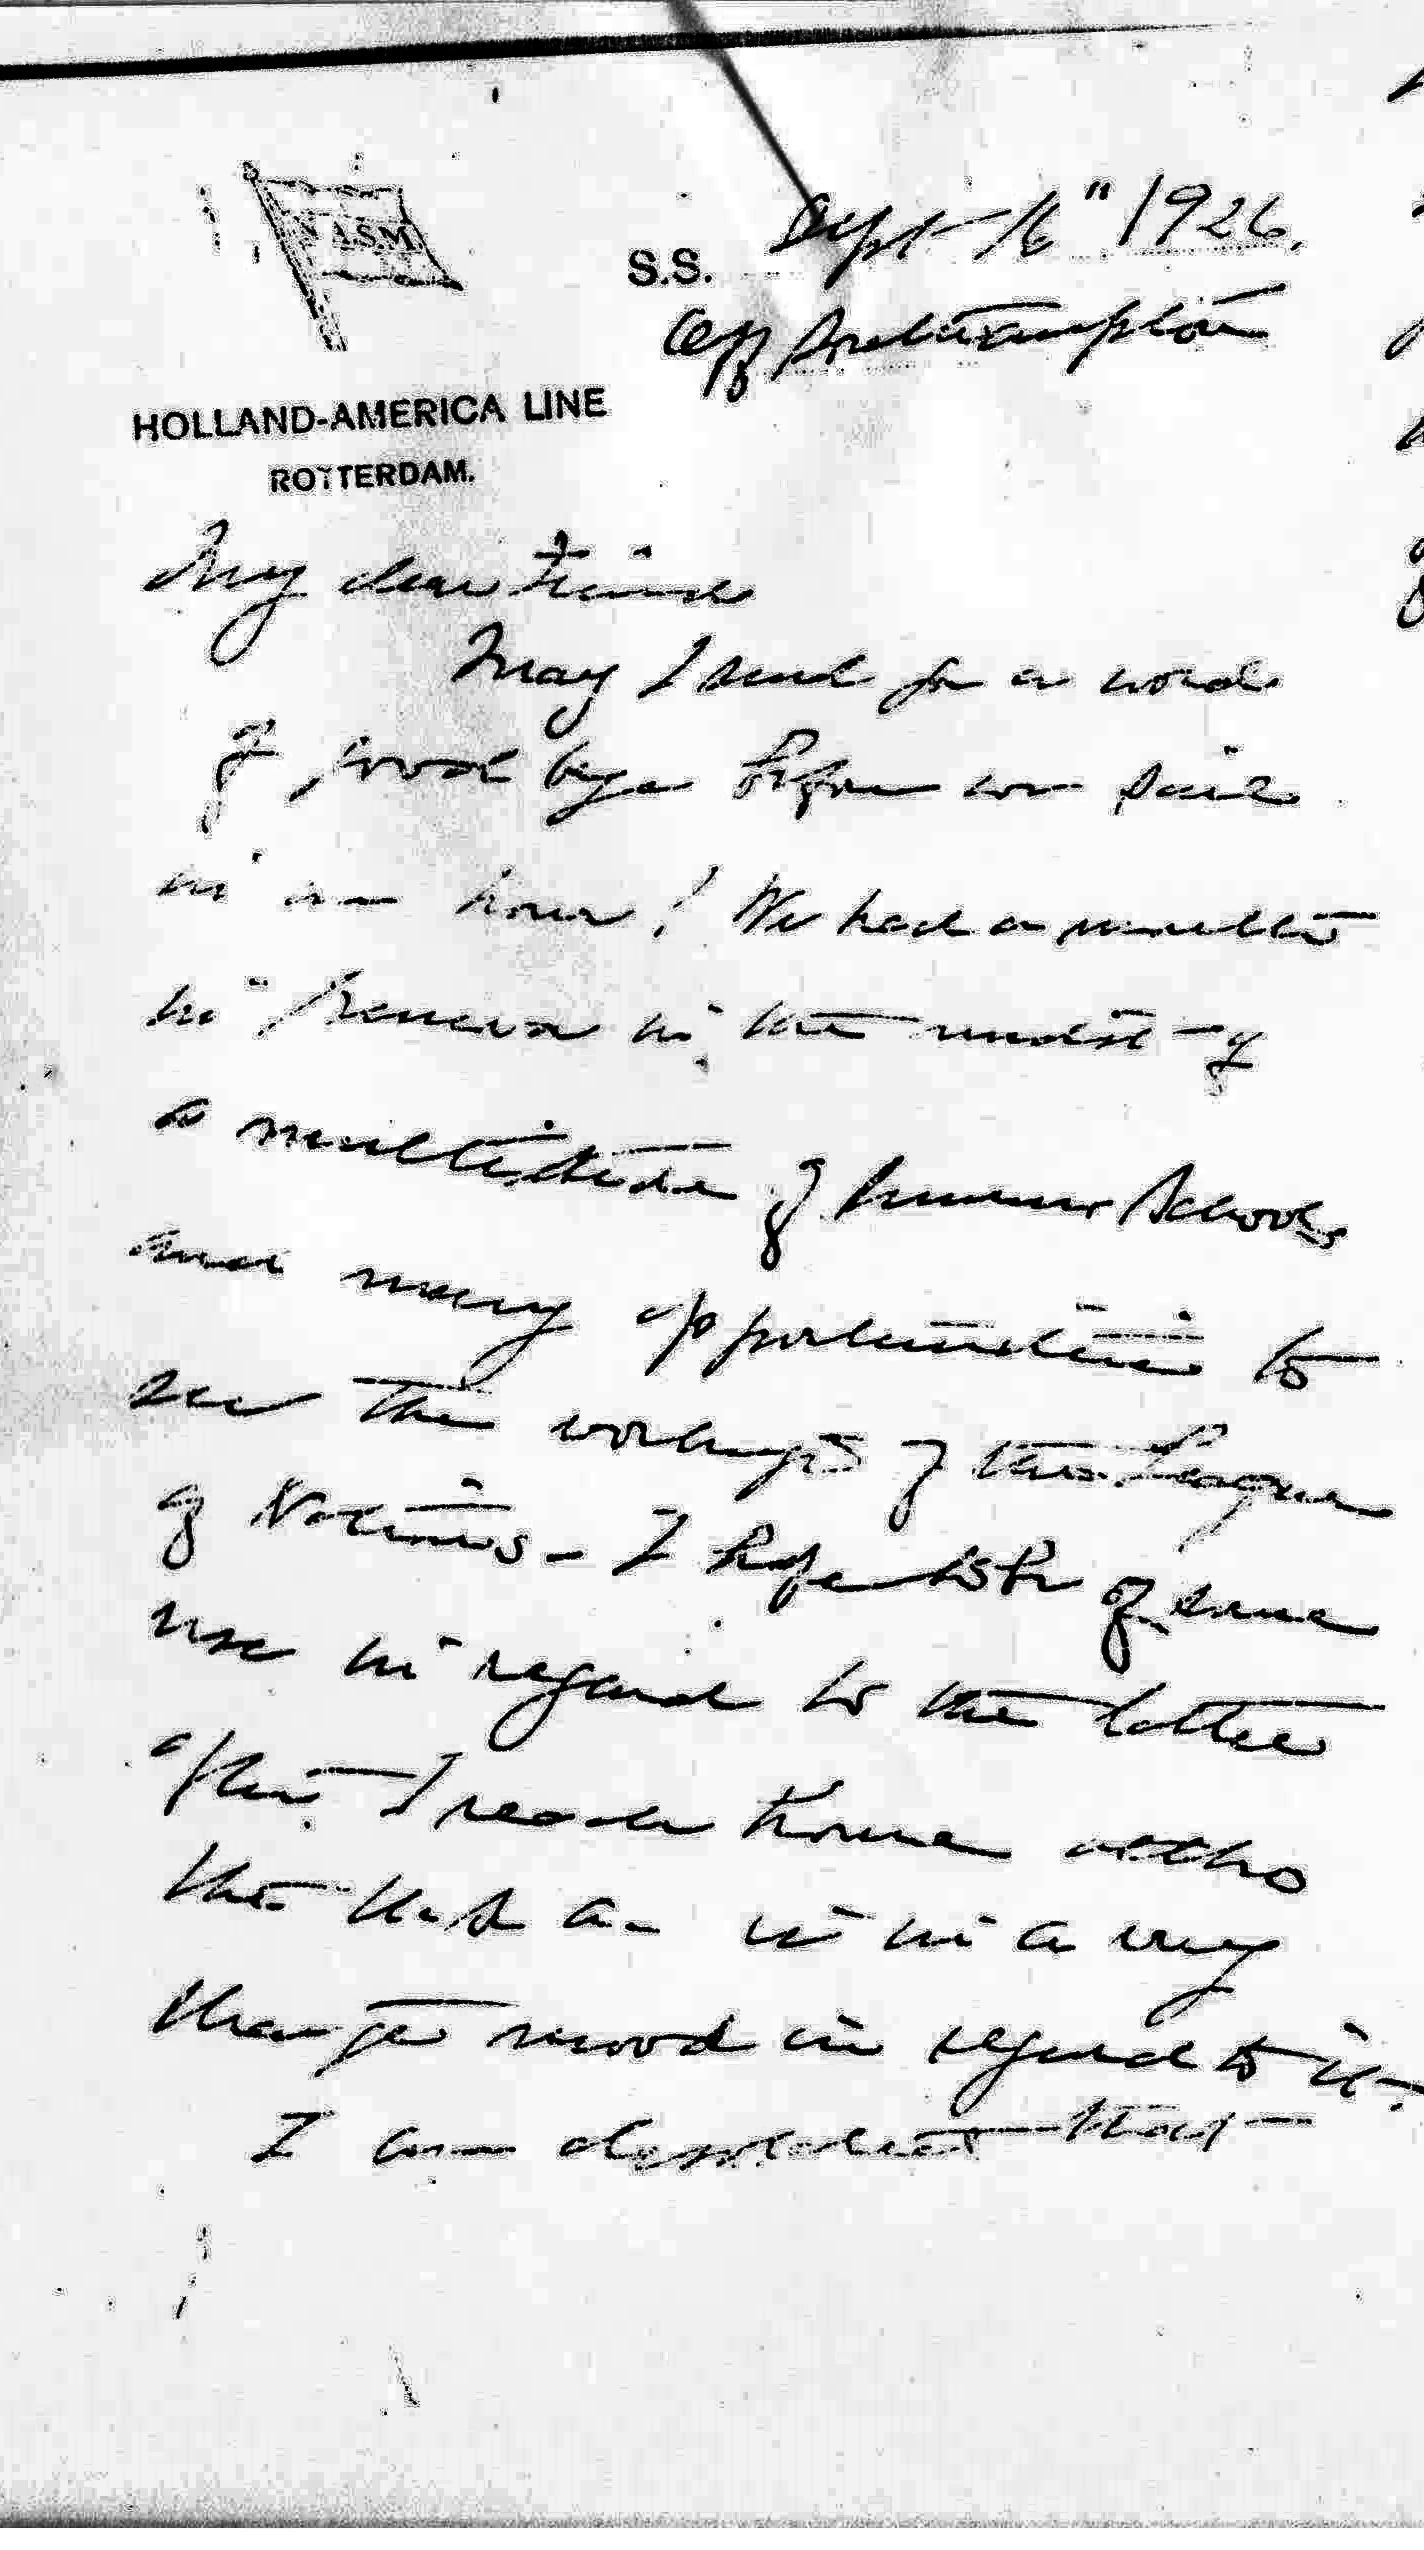 N.A.S.M.
S.S. Sept 16" 1926.
Off Southampton
HOLLAND-AMERICA LINE
ROTTERDAM.
My dear Friend
May I send you a word
of good bye before we sail
in an hour! We had a month
in Geneva in the midst of
a multitude of Summer Schools
and many opportunities to
see the workings of the League
of Nations - I hope to be of some
use in regard to the latter
after I reach home altho
the U.S.A. is in a very
strange mood in regard to it.
I am that